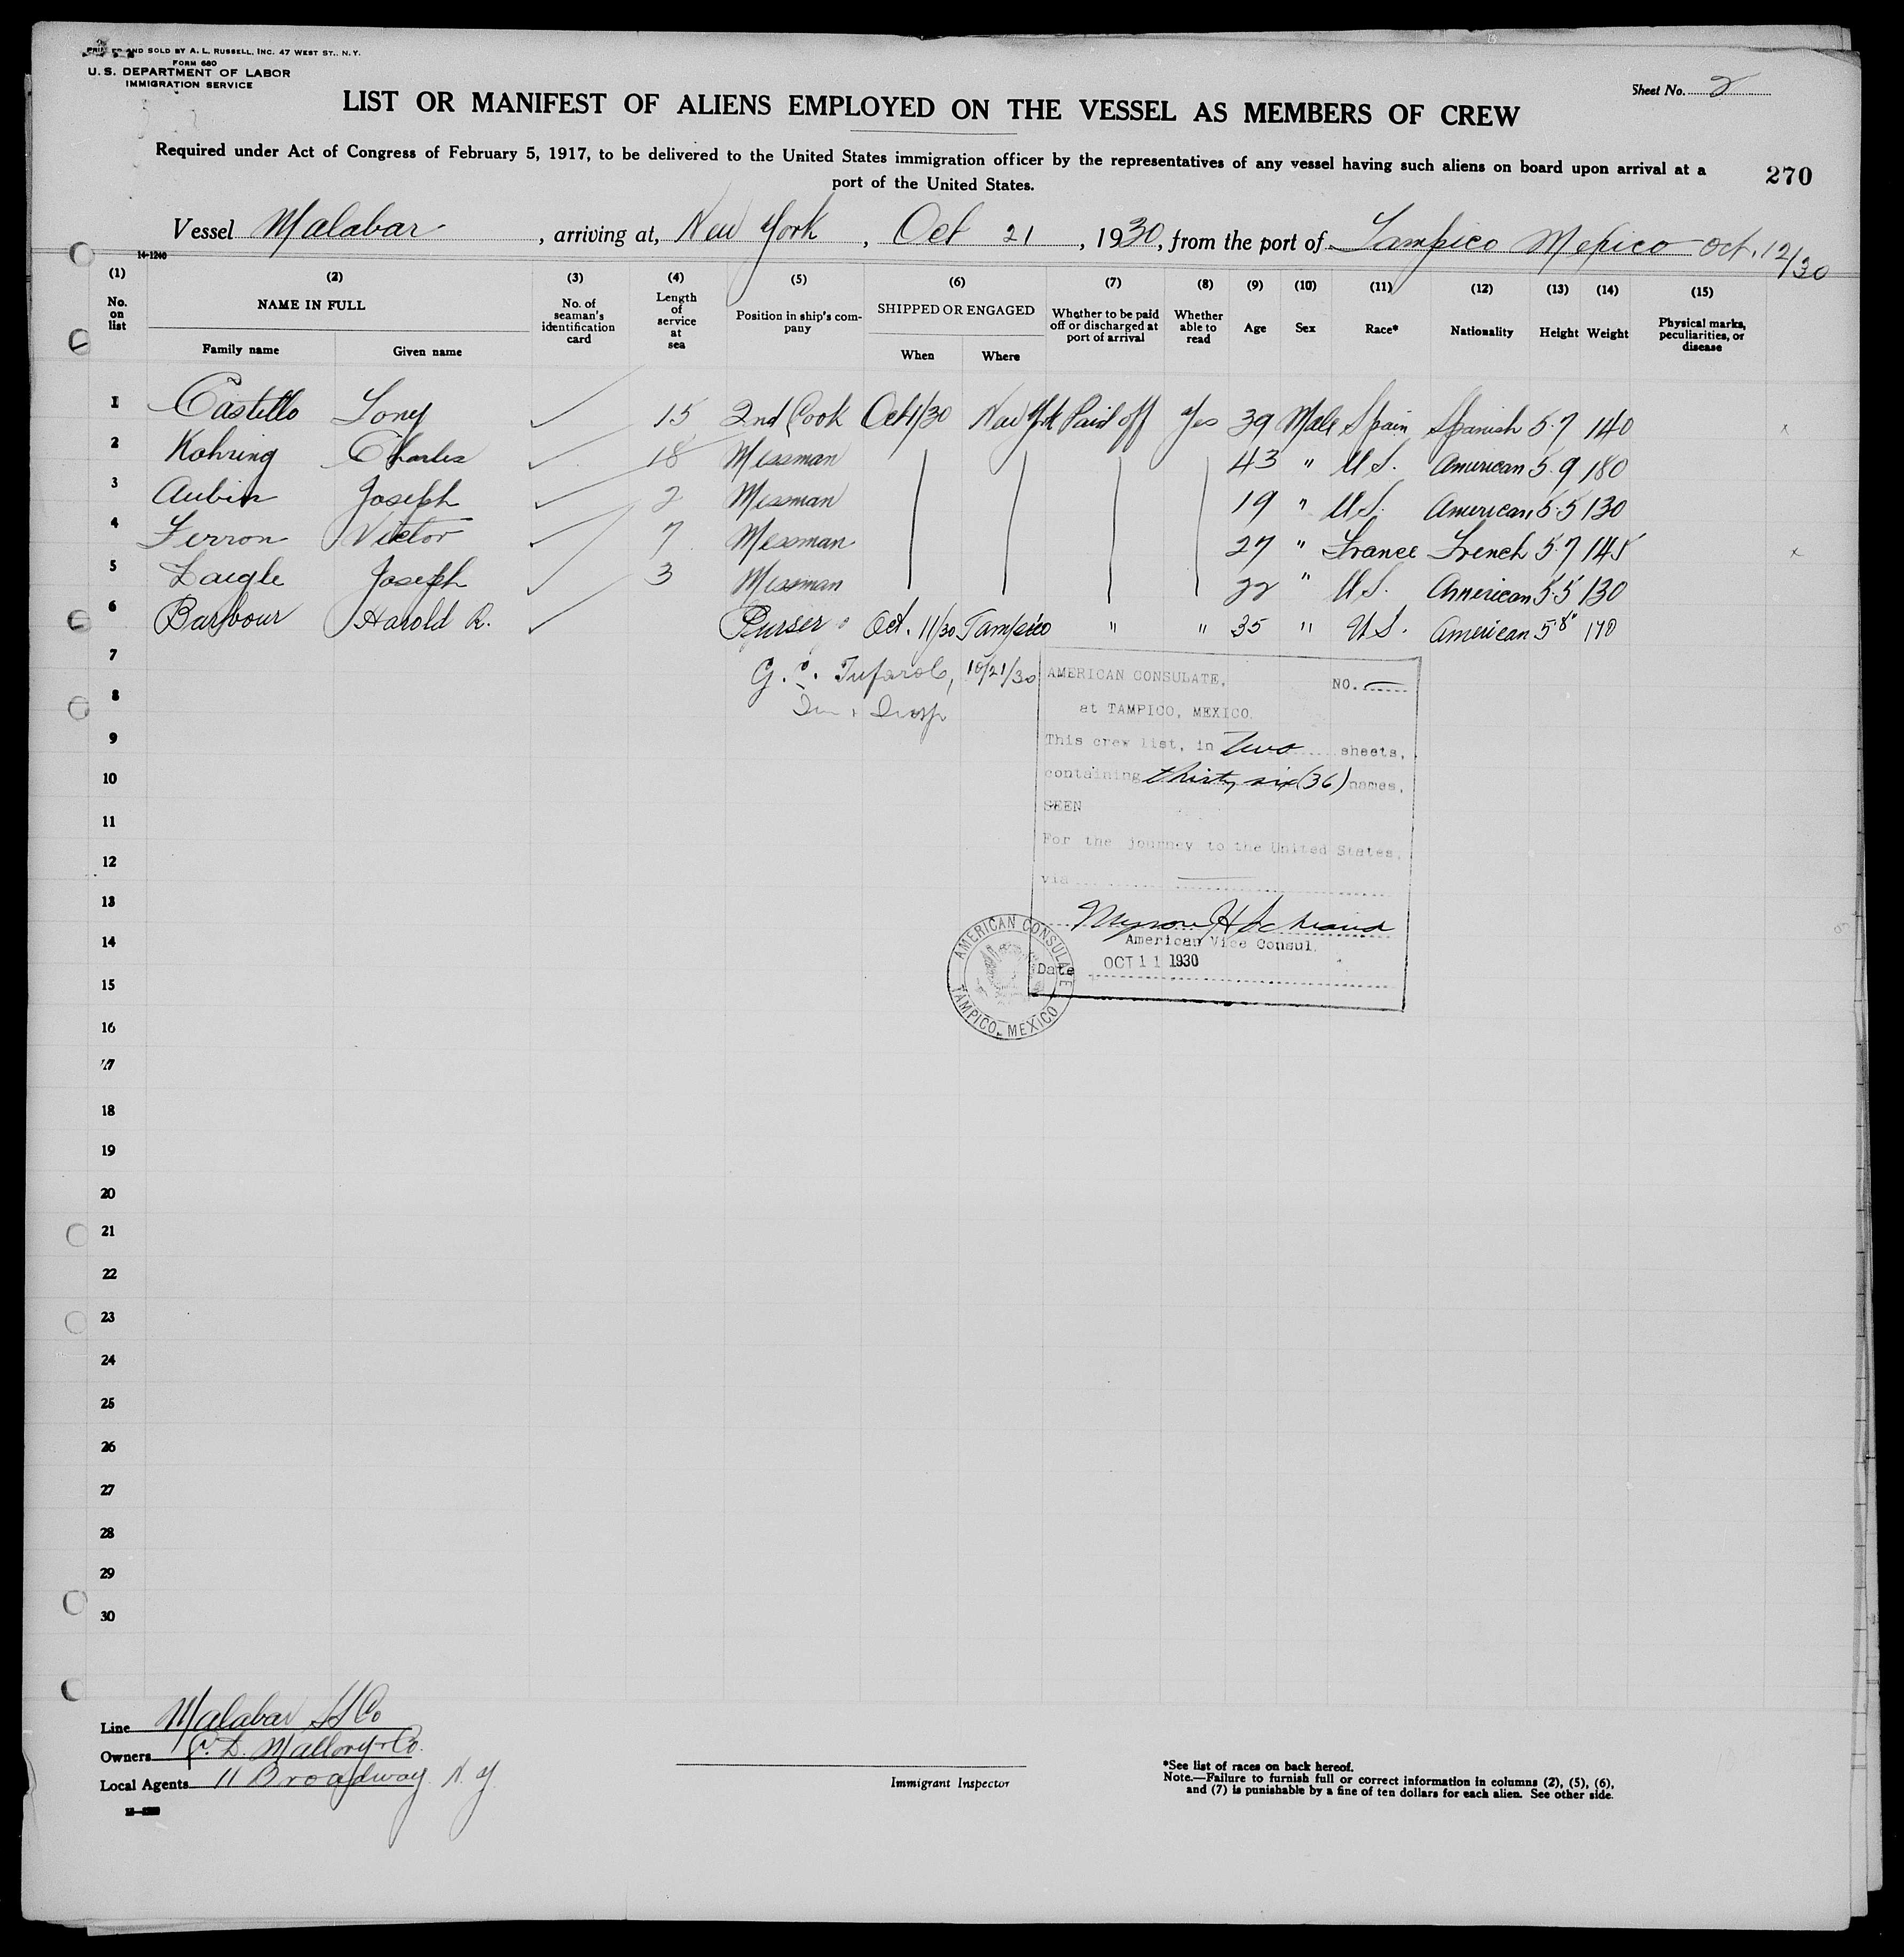 AND SOLD BY A. L. RUSSELL, INC. 47 WEST ST., N.Y.
FORM 680
U. S. DEPARTMENT OF LABOR
IMMIGRATION SERVICE
Sheet No. 2
LIST OR MANIFEST OF ALIENS EMPLOYED ON THE VESSEL AS MEMBERS OF CREW
Required under Act of Congress of February 5, 1917, to be delivered to the United States immigration officer by the representatives of any vessel having such aliens on board upon arrival at a
port of the United States.
270
Vessel Malabar, arriving at, New York, Oct 21, 1930, from the port of Tampico Mexico Oct. 12/30
14-1240
(1) (2) (3) (4) (5) (6) (7) (8) (9) (10) (11) (12) (13) (14) (15)
No. on list
NAME IN FULL
Family name Given name
No. of seaman's identification card
Length of service at sea
Position in ship's company
SHIPPED OR ENGAGED
When Where
Whether to be paid off or discharged at port of arrival
Whether able to read
Age Sex Race* Nationality Height Weight
Physical marks, peculiarities, or disease
1 Castillo Tony 15 2nd Cook Oct 1/30 New York Paid off Yes 39 Male Spain Spanish 5.7 140 x
2 Kohring Charles 18 Messman 43 " U.S. American 5.9 180
3 Aubin Joseph 2 Messman 19 " U.S. American 5.5 130
4 Ferron Victor 7 Messman 27 " France French 5.7 145 x
5 Daigle Joseph 3 Messman 22 " U.S. American 5.5 130
6 Barbour Harold R. Purser Oct. 11/30 Tampico " " 35 " U.S. American 5'8" 170
7
10/21/30
8
9
10
11
12
13
14
15
16
17
18
19
20
21
22
23
24
25
26
27
28
29
30
AMERICAN CONSULATE, NO.
at TAMPICO, MEXICO.
This crew list, in Two sheets,
containing thirty six (36) names,
SEEN
For the journey to the United States,
via
American Vice Consul.
Date OCT 11 1930
AMERICAN CONSULATE
TAMPICO, MEXICO
Line Malabar SS Co
Owners C. D. Mallory & Co.
Local Agents 11 Broadway N.Y.
Immigrant Inspector
*See list of races on back hereof.
Note.—Failure to furnish full or correct information in columns (2), (5), (6),
and (7) is punishable by a fine of ten dollars for each alien. See other side.